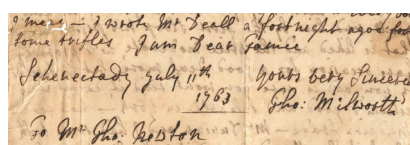 I mean – I wrote Mr Deall a fortnight ago for
some trifles I am Dear Jamie
Schenectady July 11th yours very Sincere
1763 Tho: Milworth
To Mr Tho: Newton